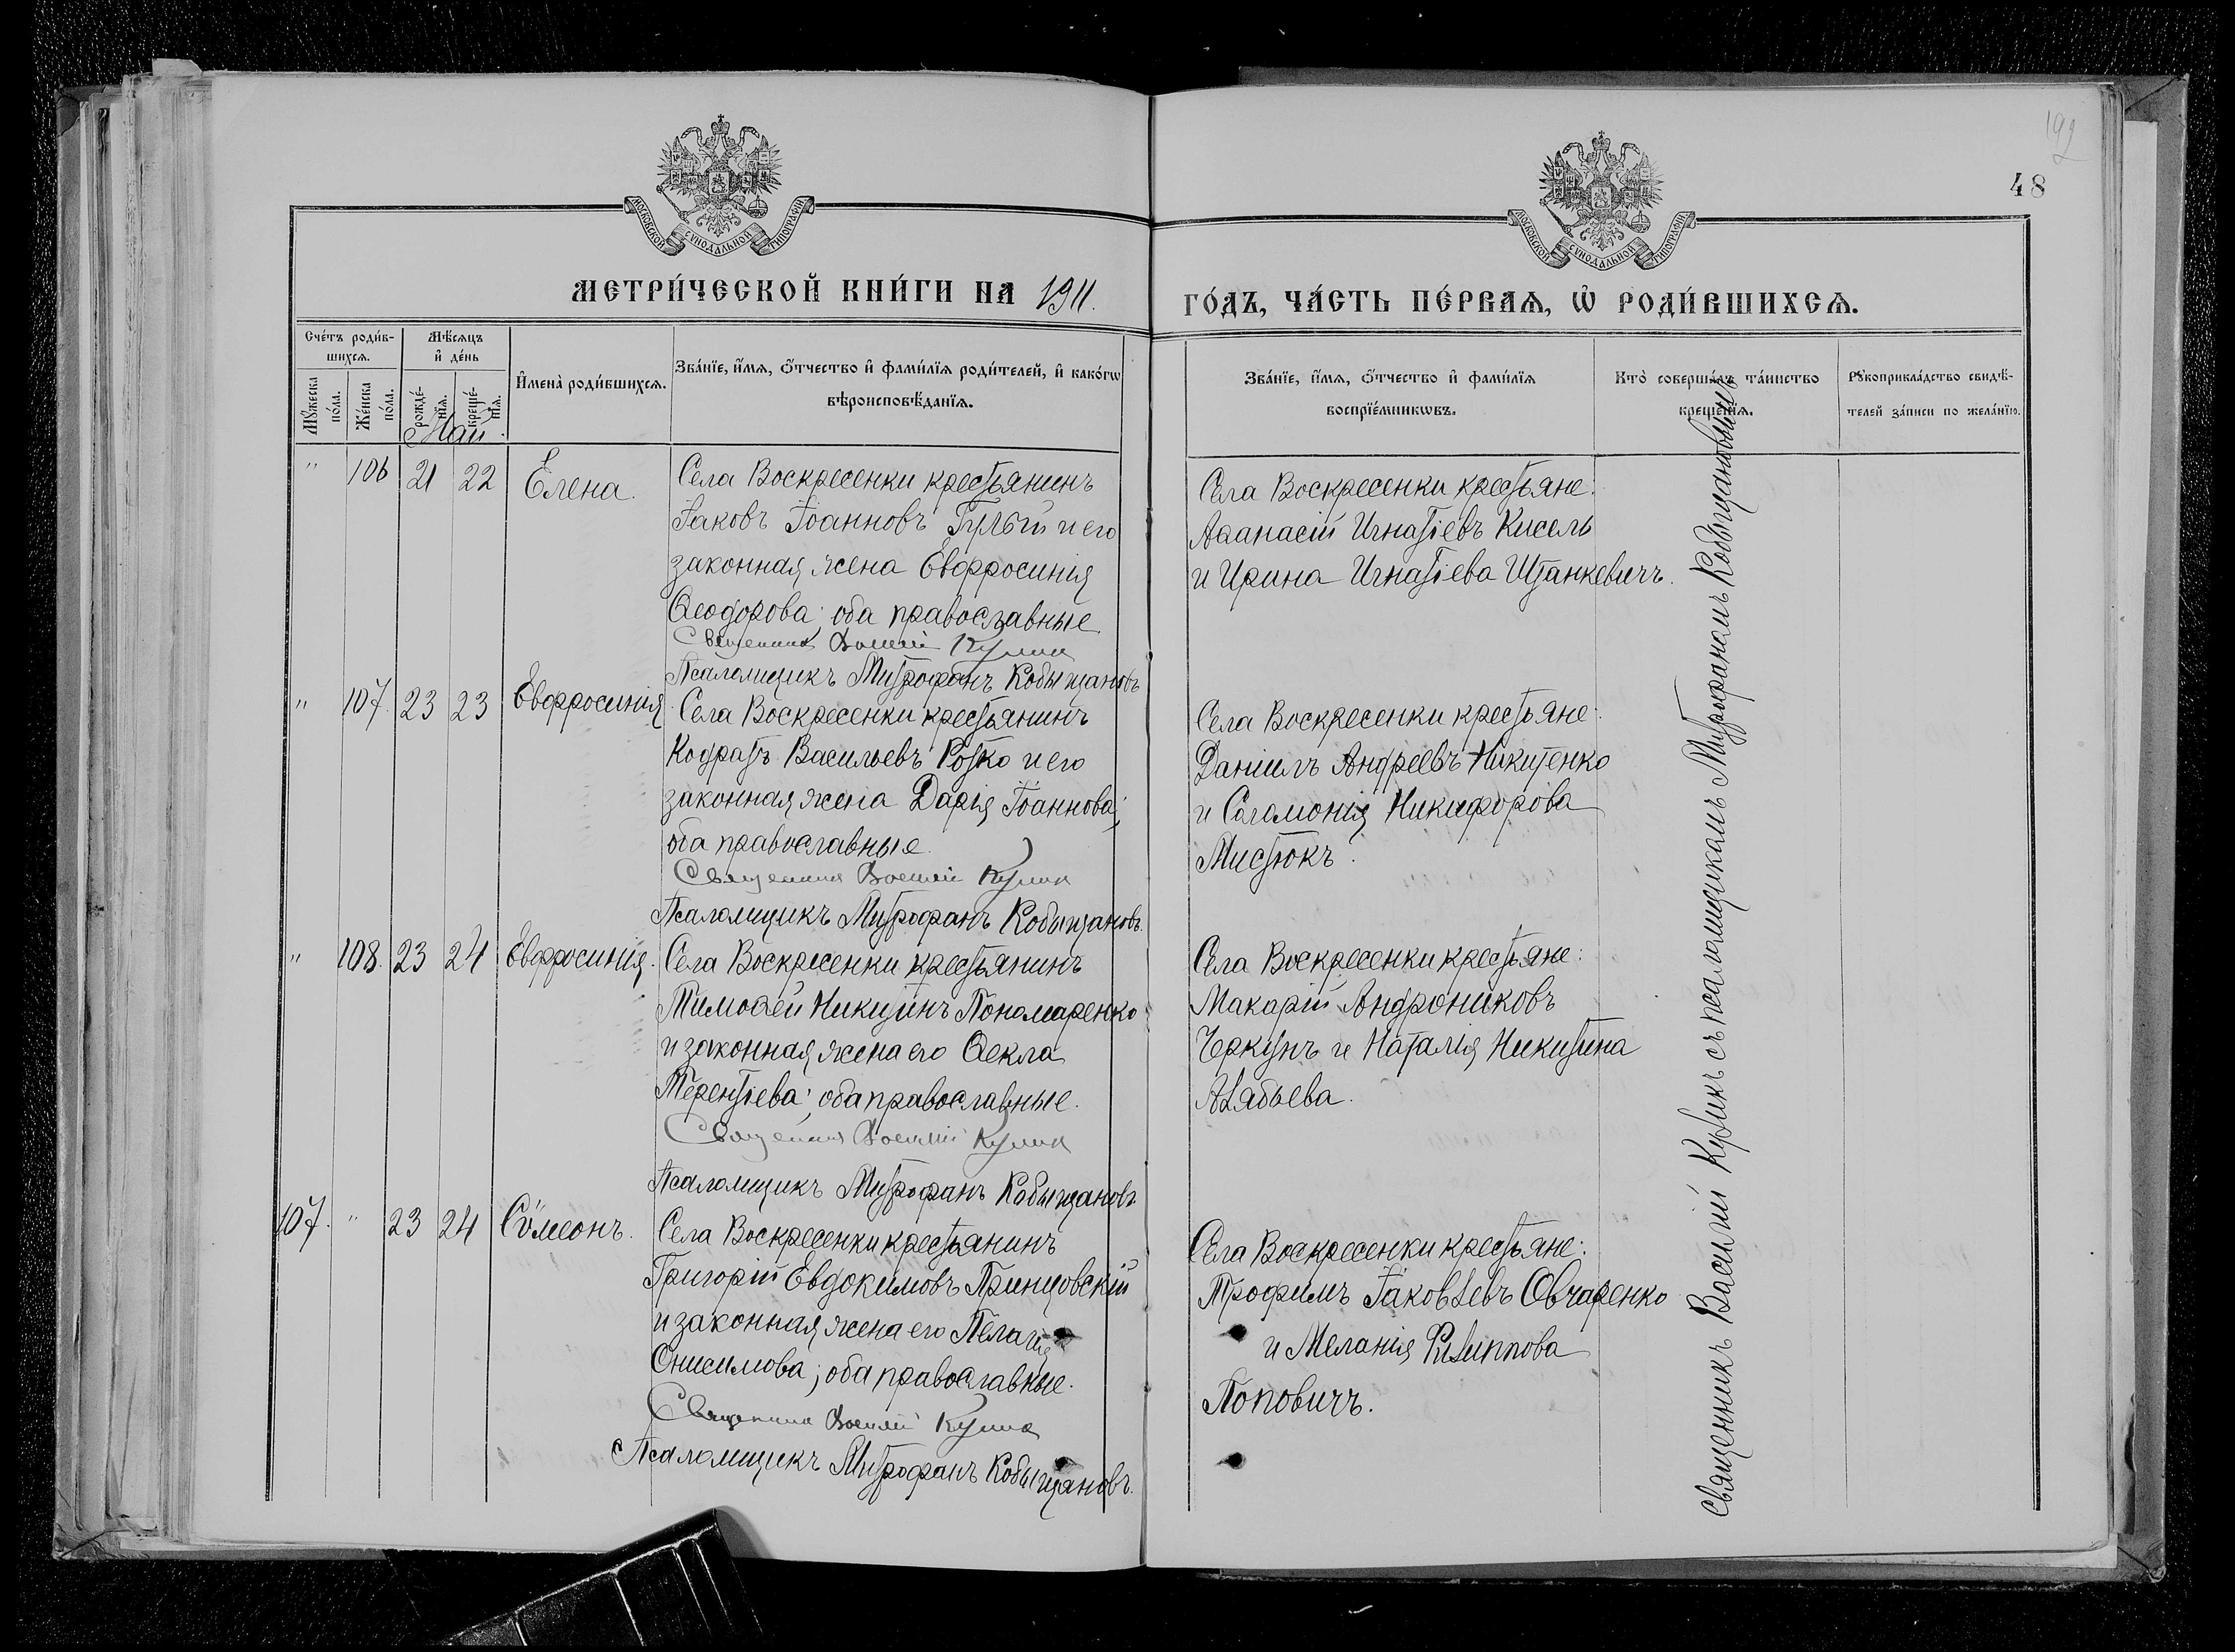 192
48
МОСКОВСКОЙ СѴНОДАЛЬНОЙ ТИПОГРАФІИ
МОСКОВСКОЙ СѴНОДАЛЬНОЙ ТИПОГРАФІИ
МЕТРИ́ЧЕСКОЙ КНИ́ГИ НА 1911.
ГО́ДЪ, ЧА́СТЬ ПЕ́РВАѦ, Ѡ҆ РОДИ́ВШИХСѦ.
Сче́тъ роди́в-
шихсѧ.
Мꙋ́жеска по́ла.
Же́нска по́ла.
Мѣ́сѧцъ
и҆ де́нь
рожде́-нїѧ.
креще́-нїѧ.
И҆мена̀ роди́вшихсѧ.
Зва́нїе, и҆́мѧ, ѻ҆́тчество и҆ фами́лїѧ роди́телей, и҆ како́гѡ
вѣроисповѣ́данїѧ.
Зва́нїе, и҆́мѧ, ѻ҆́тчество и҆ фами́лїѧ
воспрїе́мникѡвъ.
Кто̀ соверша́лъ та́инство
креще́нїѧ.
Рꙋкоприкла́дство свидѣ́-
телей за́писи по жела́нїю.
Май.
" 106 21 22 Елена.
Села Воскресенки крестьянинъ
Іаковъ Іоанновъ Гулый и его
законная жена Евфросинія
Ѳеодорова; оба православные.
Священникъ Василій Кулик
Псаломщикъ Митрофанъ Кобыщановъ
Села Воскресенки крестьяне:
Аѳанасій Игнатіевъ Кисель
и Ирина Игнатіева Штанкевичъ.
" 107. 23 23 Евфросинія.
Села Воскресенки крестьянинъ
Кодратъ Васильевъ Ротко и его
законная жена Дарія Іоаннова;
оба православные.
Священник Василій Кулик
Псаломщикъ Митрофанъ Кобыщановъ.
Села Воскресенки крестьяне:
Даніилъ Андреевъ Никитенко
и Соломонія Никифорова
Мистюкъ.
" 108. 23 24 Евфросинія.
Села Воскресенки крестьянинъ
Тимоѳей Никитинъ Пономаренко
и законная жена его Ѳекла
Терентіева; оба православные.
Священник Василій Кулик
Псаломщикъ Митрофанъ Кобыщановъ
Села Воскресенки крестьяне:
Макарій Андрониковъ
Черкунъ и Наталія Никитина
Алябьева.
107. " 23 24 Сѵмеонъ.
Села Воскресенки крестьянинъ
Григорій Евдокимовъ Принцовскій
и законная жена его Пелагія
Онисимова; оба православные.
Священник Василій Кулик
Псаломщикъ Митрофанъ Кобыщановъ.
Села Воскресенки крестьяне:
Трофимъ Іаковлевъ Овчаренко
и Меланія Филиппова
Поповичъ.
Священникъ Василій Куликъ съ псаломщикомъ Митрофаномъ Кобыщановымъ